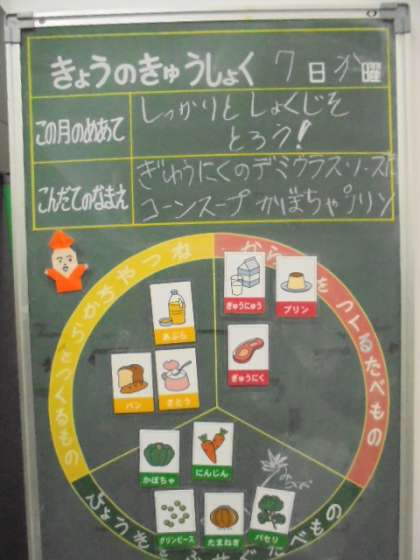 きょうのきゅうしょく 7日 火曜
この月のめあて
しっかりと しょくじを
とろう!
こんだてのなまえ
ぎゅうにくのデミグラスソースた
コーンスープ かぼちゃプリン
ちからやねつ
をつくるたべもの
となるもの
ぎゅうにゅう
プリン
あぶら
ぎゅうにく
パン
さとう
かぼちゃ
にんじん
グリンピース
たまねぎ
パセリ
びょうきを
たべもの